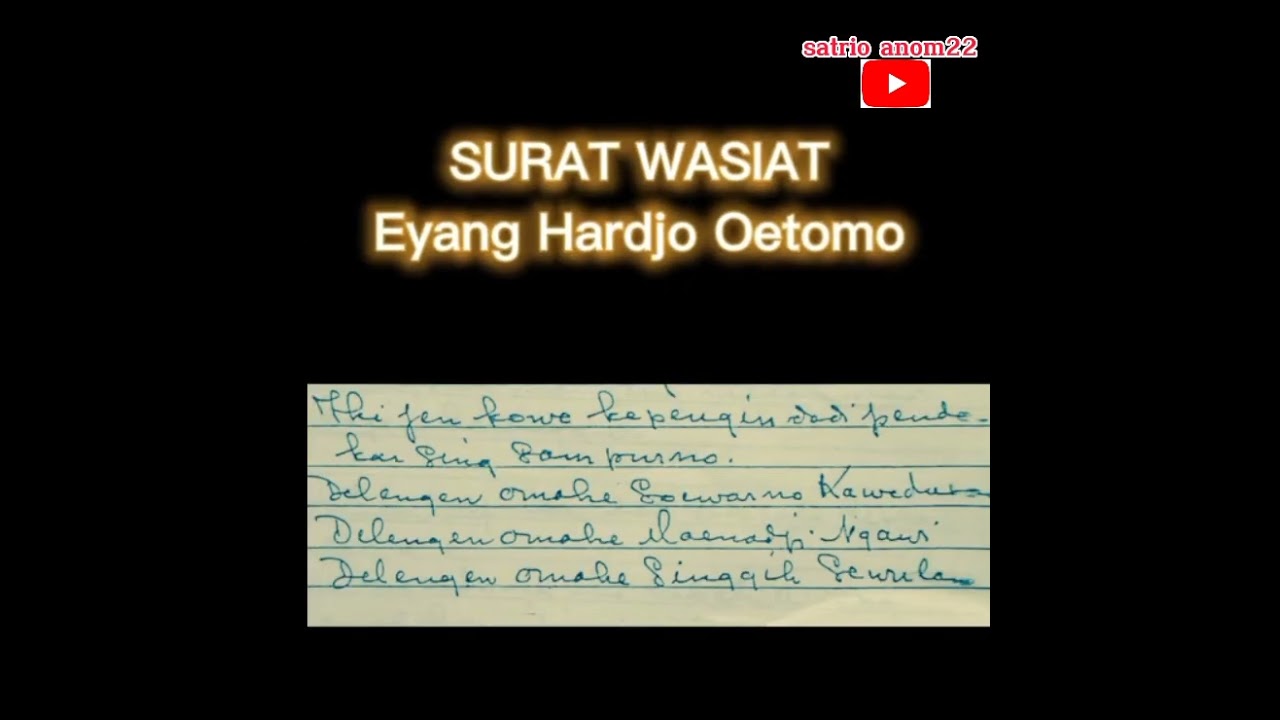 satrio anom22
SURAT WASIAT
Eyang Hardjo Oetomo
Iki jen kowe kepèngin dadi pende-
kar sing sampurno.
Delengen omahe Soewarno Kawedu
Delengen omahe Moenadji Ngawi
Delengen omahe Singgih Sewulan